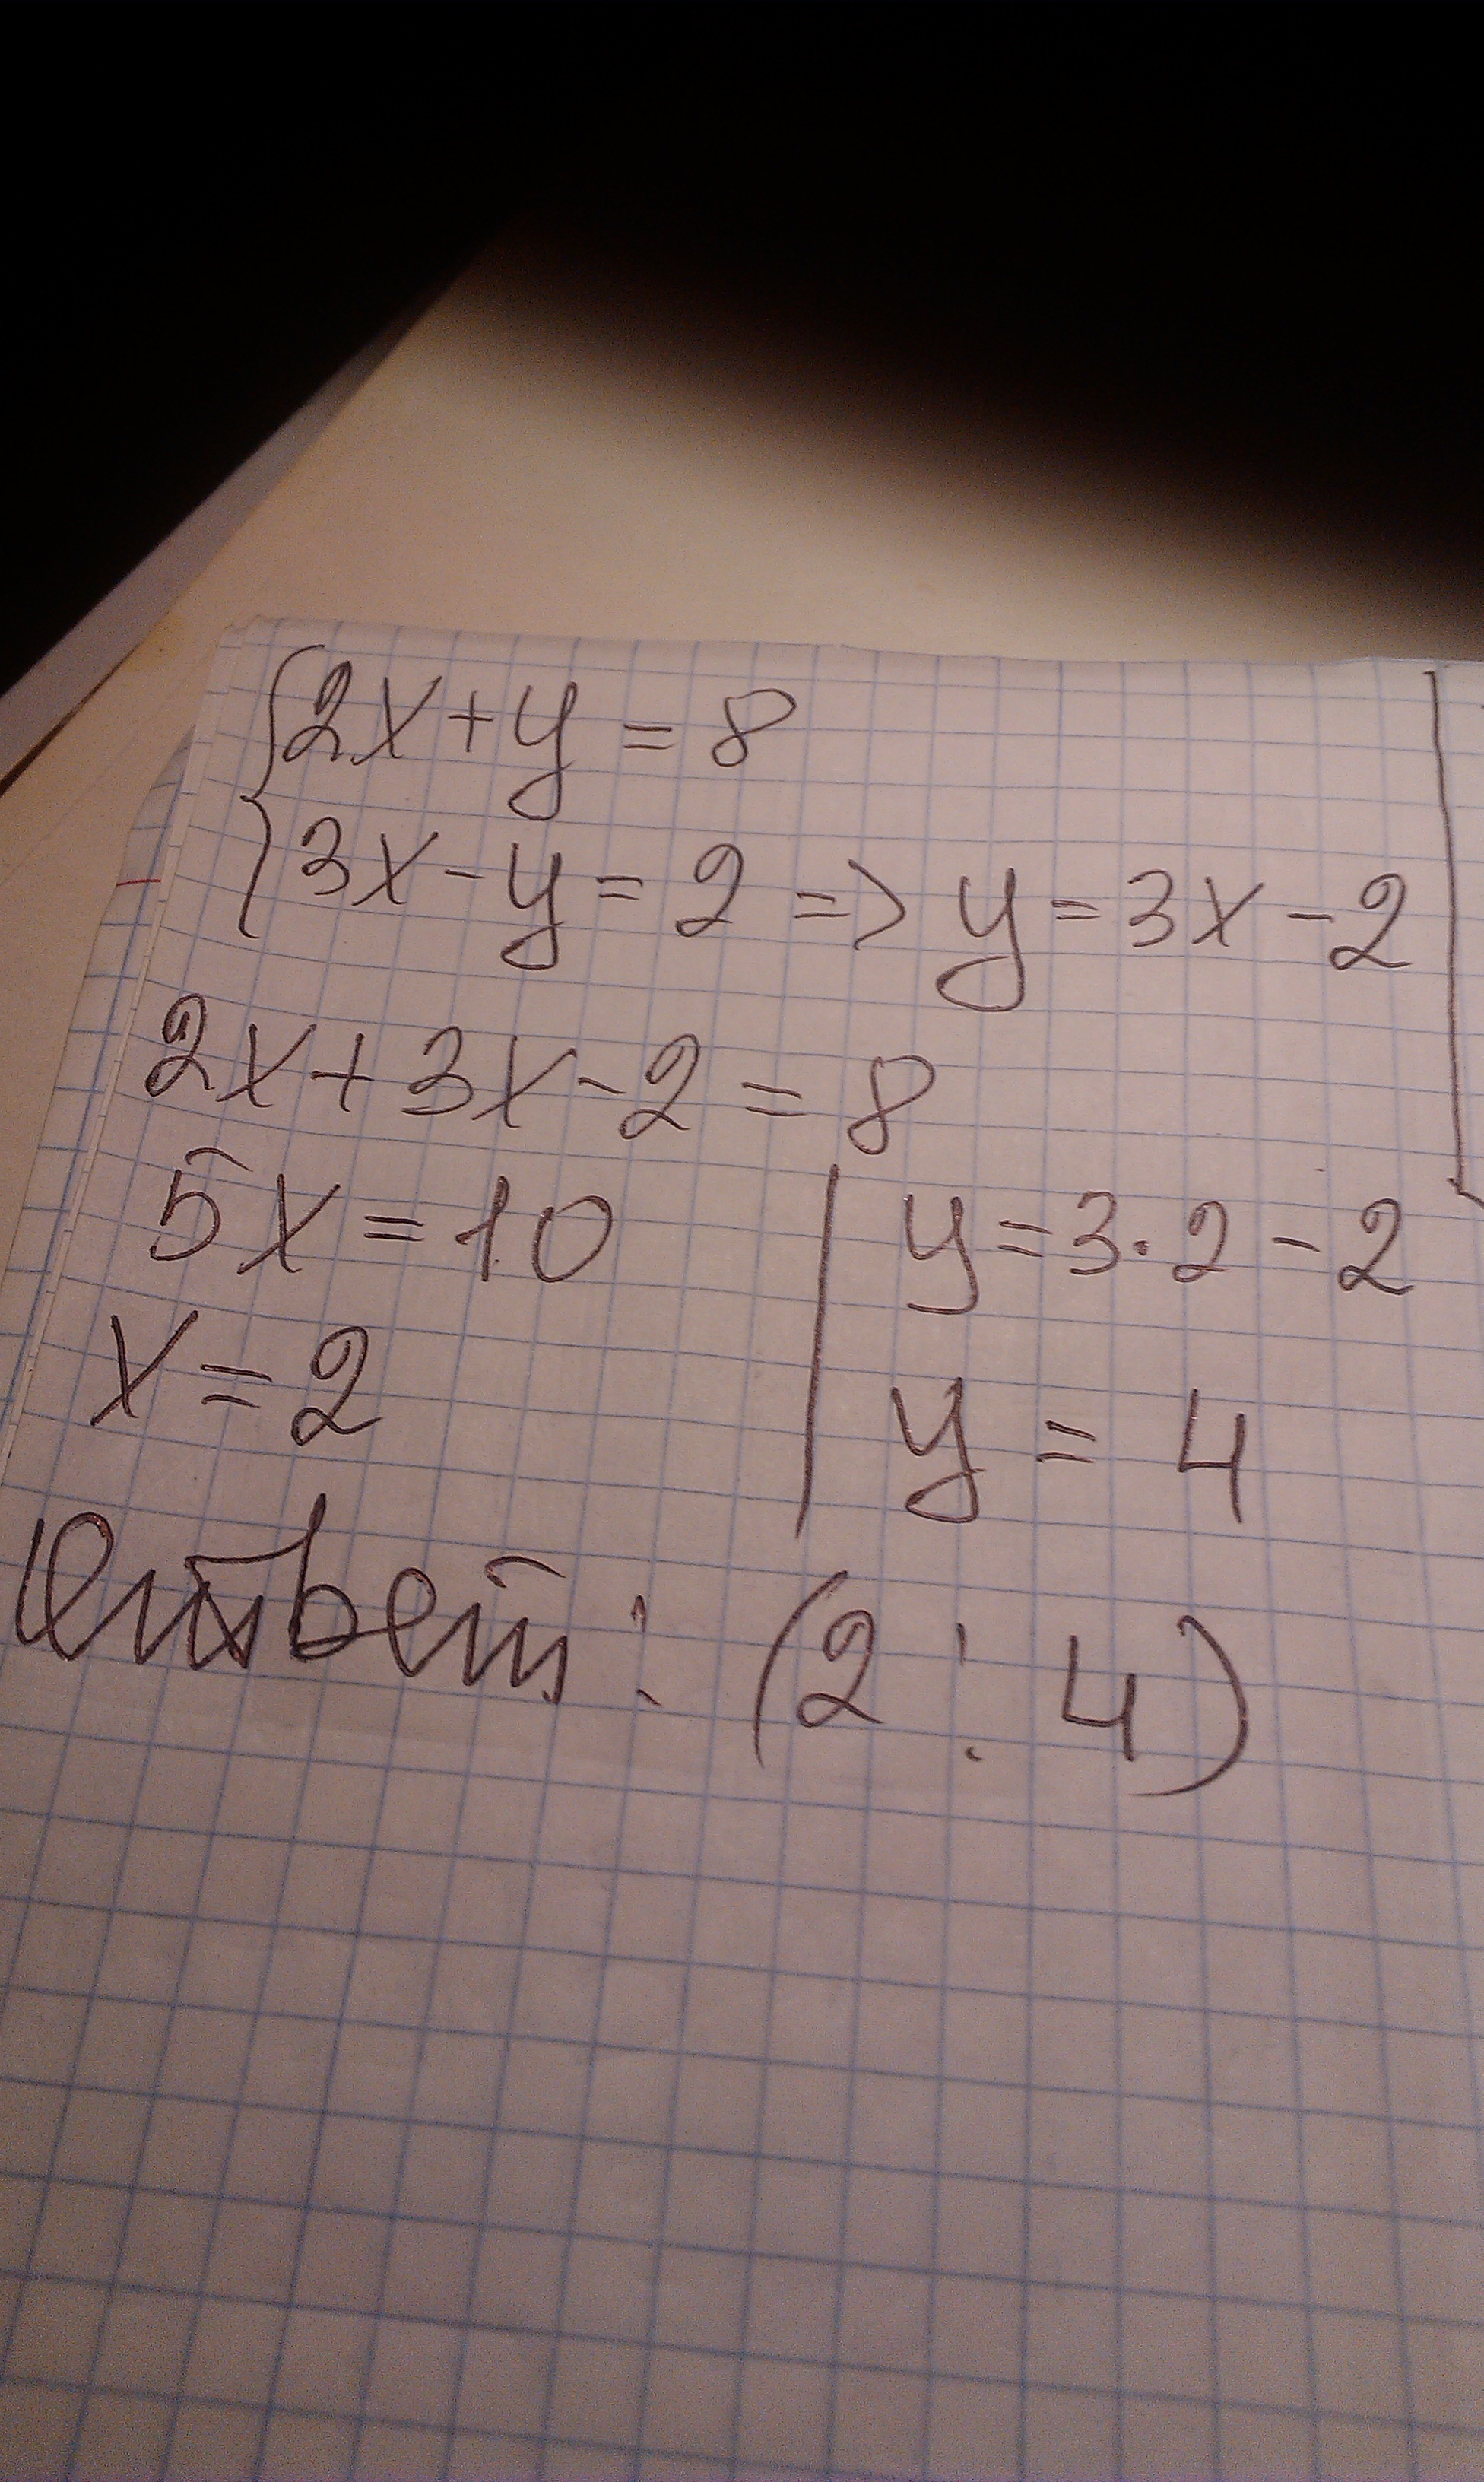 {2x+y=8
{3x-y=2 => y=3x-2
2x+3x-2=8
5x=10 | y=3·2-2
x=2 | y=4
Ответ: (2;4)